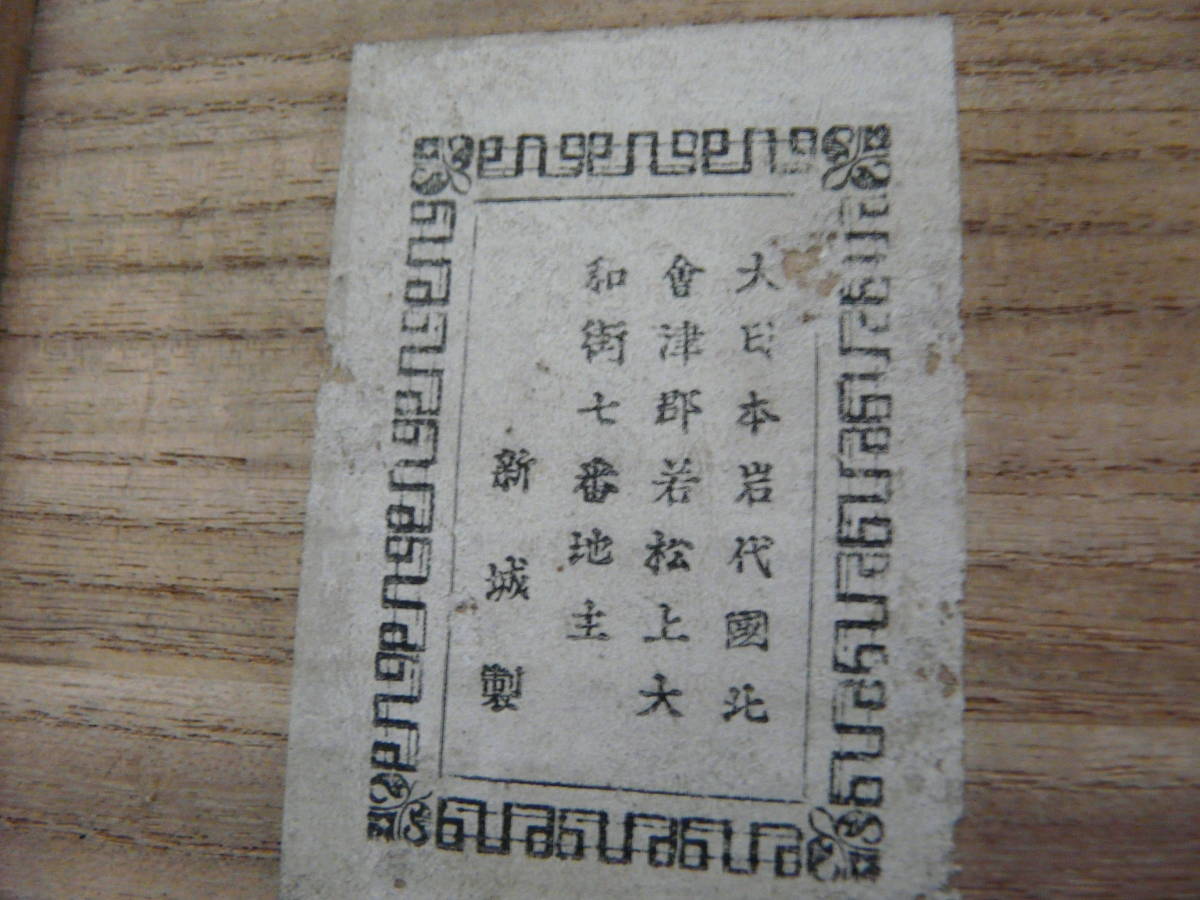 大日本岩代國北
會津郡若松上大
和街七番地主
新城製